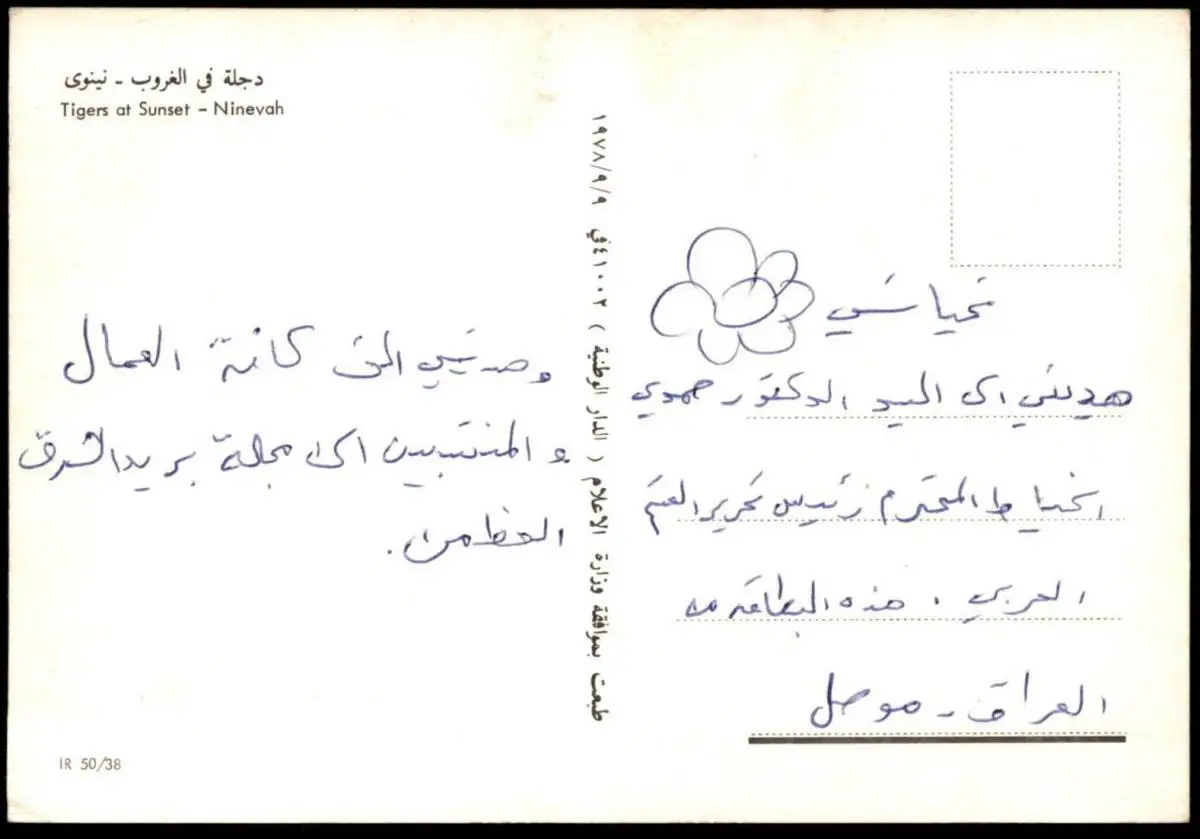 دجلة في الغروب - نينوى
Tigers at Sunset - Ninevah
طبعت بموافقة وزارة الاعلام ( الدار الوطنية ) ٤١٠٠٢ في ١٩٧٨/٩/٩
تحياتي
هديتي الى السيد الدكتور حمودي
الخياط المحترم رئيس تحرير القسم
العربي . هذه البطاقة من
العراق - موصل
وهديتي الى كافة العمال
و المنتسبين الى مجلة بريد الشرق
IR 50/38